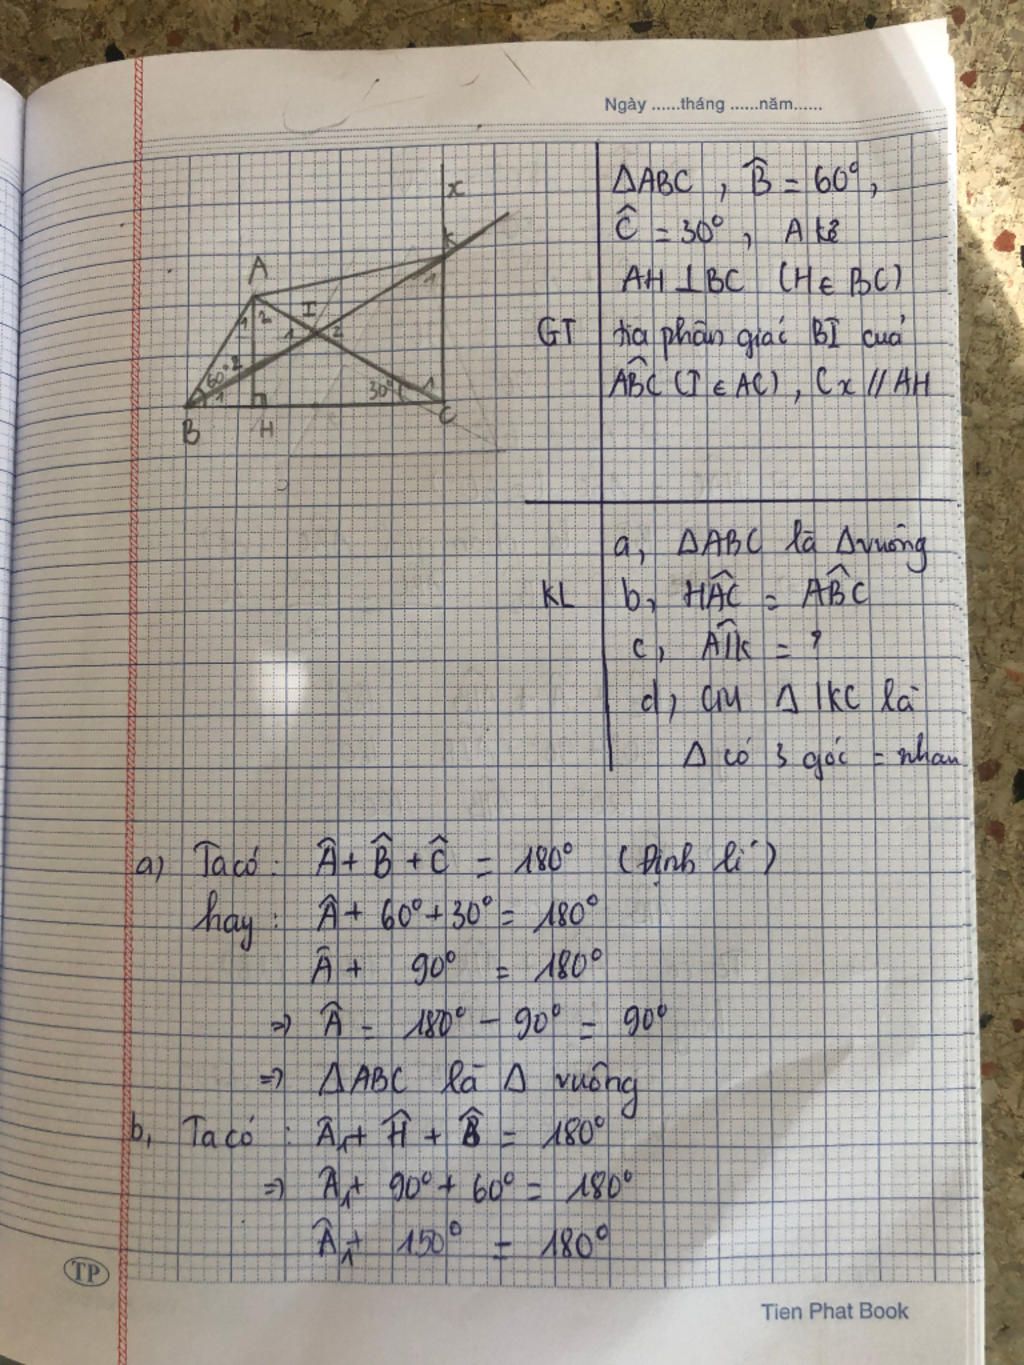 Ngày ......tháng ......năm......
x
K
1
A
1 2
I
1 2
60° 2
1
30°
1
B H C
ΔABC , B̂ = 60°,
Ĉ = 30° , A kẻ
AH ⊥ BC (H ∈ BC)
GT tia phân giác BI của
ABĈ (I ∈ AC) , Cx // AH
a, ΔABC là Δ vuông
KL b, HÂC = AB̂C
c, AÎK = ?
d, CM Δ IKC là
Δ có 3 góc = nhau
a) Ta có : Â + B̂ + Ĉ = 180° (Định lí)
hay : Â + 60° + 30° = 180°
Â + 90° = 180°
=> Â = 180° - 90° = 90°
=> ΔABC là Δ vuông
b, Ta có : Â₁ + Ĥ + B̂ = 180°
=> Â₁ + 90° + 60° = 180°
Â₁ + 150° = 180°
TP
Tien Phat Book